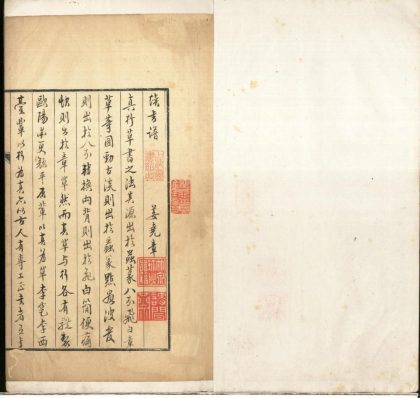 續書譜
姜堯章
真行草書之法其源出於蟲篆八分飛白章
草等圓勁古淡則出於蟲篆點畫波發
則出於八分轉換向背則出於飛白簡便痛
快則出於章草然而真草與行各有體製
歐陽率更顏平原輩以真為草李邕李西
臺輩以行為真亦以古人有專工正書者有專